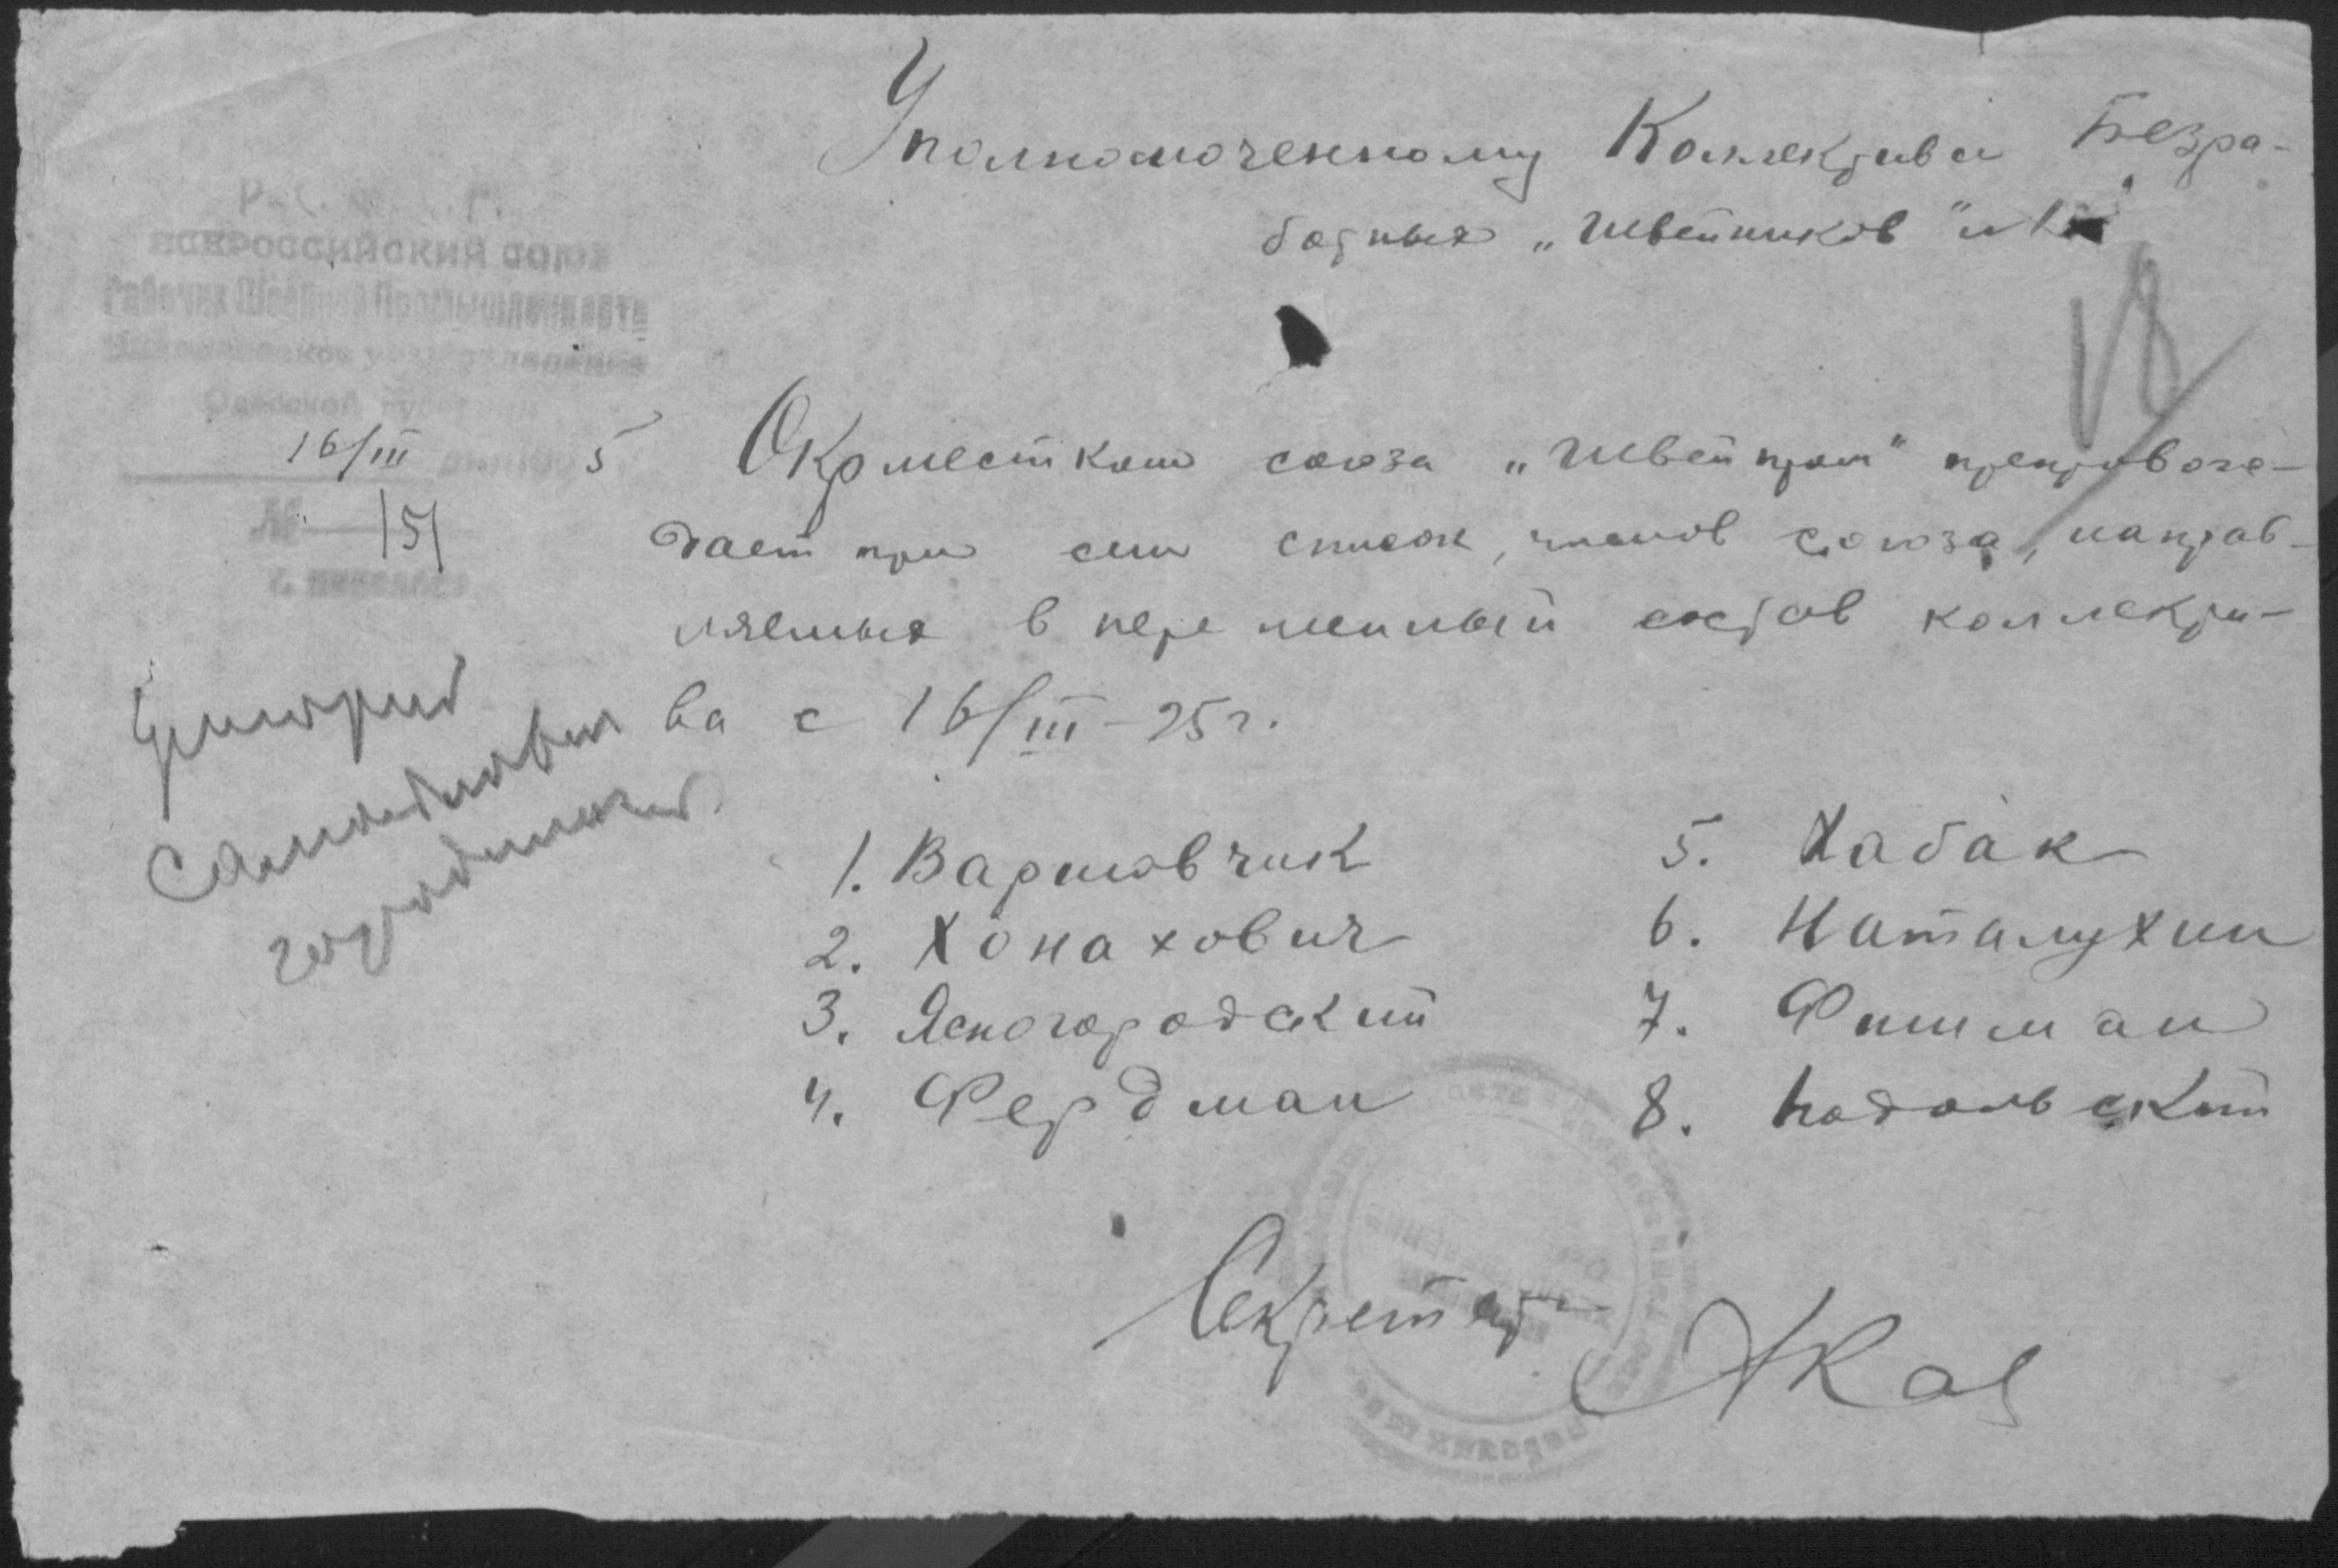 Уполномоченному Коллектива Безра-
ботных „Швейников"
18
Р.С.Ф.С.Р.
ВСЕРОССИЙСКИЙ СОЮЗ
Рабочих Швейной Промышленности
Николаевское уездотделение
Одесской губернии
16/III 5
№ 151
г. Николаев
Окрместком союза „Швейпром" препровож-
дает при сем список членов союза, направ-
ляемых в переменный состав коллекти-
ва с 16/III-25 г.
1. Варшавчик
2. Хонахович
3. Ясногородский
4. Фердман
5. Хабак
6. Наталухин
7. Фишман
8. Подольский
Секретарь